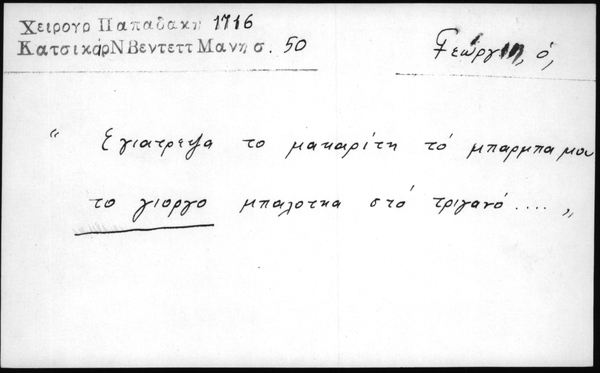 Χειρογρ Παπαδακη 1716
Κατσικάρ Ν Βεντεττ Μανη σ. 50
ὁ,
“ Εγιατρεψα το μακαρίτη τό μπαρμπα μου
το γιοργο μπαλοτκα στό τριγανό .... „